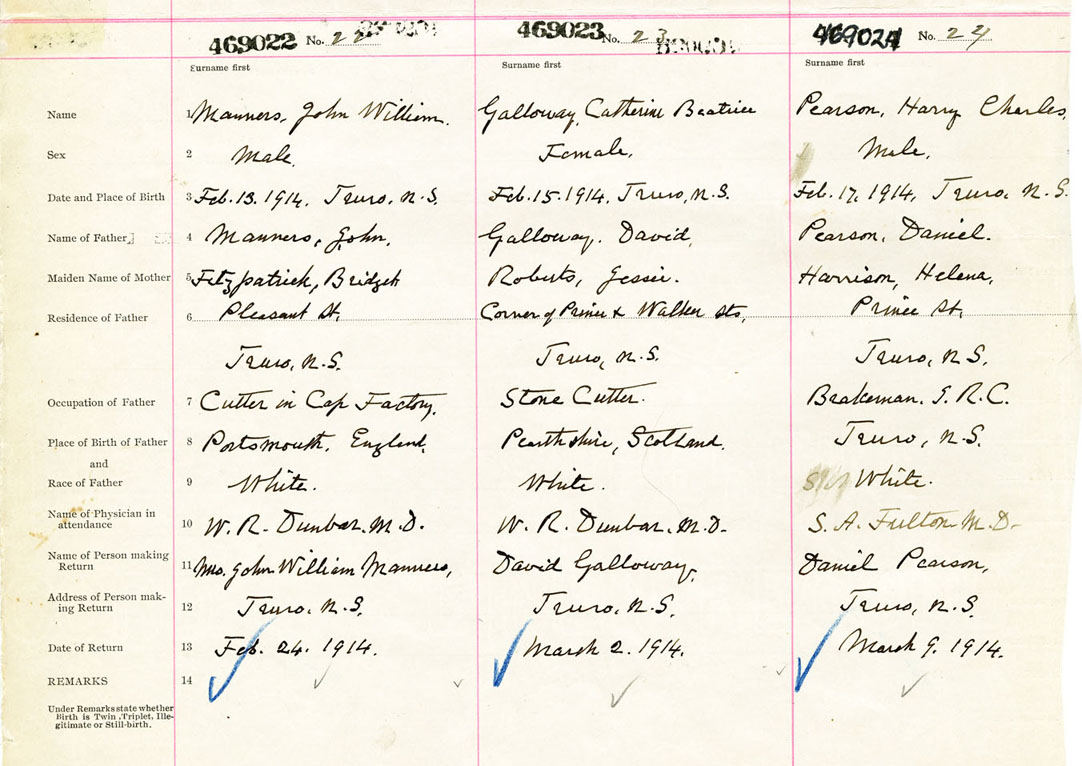 469022 No. 22 469023 No. 23 469024 No. 24
Surname first Surname first Surname first
Name 1 Manners, John William. Galloway, Catherine Beatrice Pearson, Harry Charles.
Sex 2 Male. Female. Male.
Date and Place of Birth 3 Feb. 13. 1914. Truro, N.S. Feb. 15. 1914. Truro, N.S. Feb. 17, 1914, Truro, N.S.
Name of Father 4 Manners, John. Galloway. David, Pearson, Daniel.
Maiden Name of Mother 5 Fitzpatrick, Bridget Roberts, Jessie. Harrison, Helena,
Residence of Father 6 Pleasant St. Corner of Prince & Walker Sts, Prince St,
Truro, N.S. Truro, N.S. Truro, N.S.
Occupation of Father 7 Cutter in Cap Factory. Stone Cutter. Brakeman. I.R.C.
Place of Birth of Father 8 Portsmouth, England. Pearthshire, Scotland. Truro, N.S.
and
Race of Father 9 White. White. White.
Name of Physician in
attendance 10 W. R. Dunbar. M.D. W. R. Dunbar. M.D. S. A. Fulton M.D.
Name of Person making
Return 11 Mrs. John William Manners, David Galloway, Daniel Pearson,
Address of Person mak-
ing Return 12 Truro, N.S. Truro, N.S. Truro, N.S.
Date of Return 13 Feb. 24. 1914. March 2. 1914. March 9. 1914.
REMARKS 14
Under Remarks state whether
Birth is Twin, Triplet, Ille-
gitimate or Still-birth.